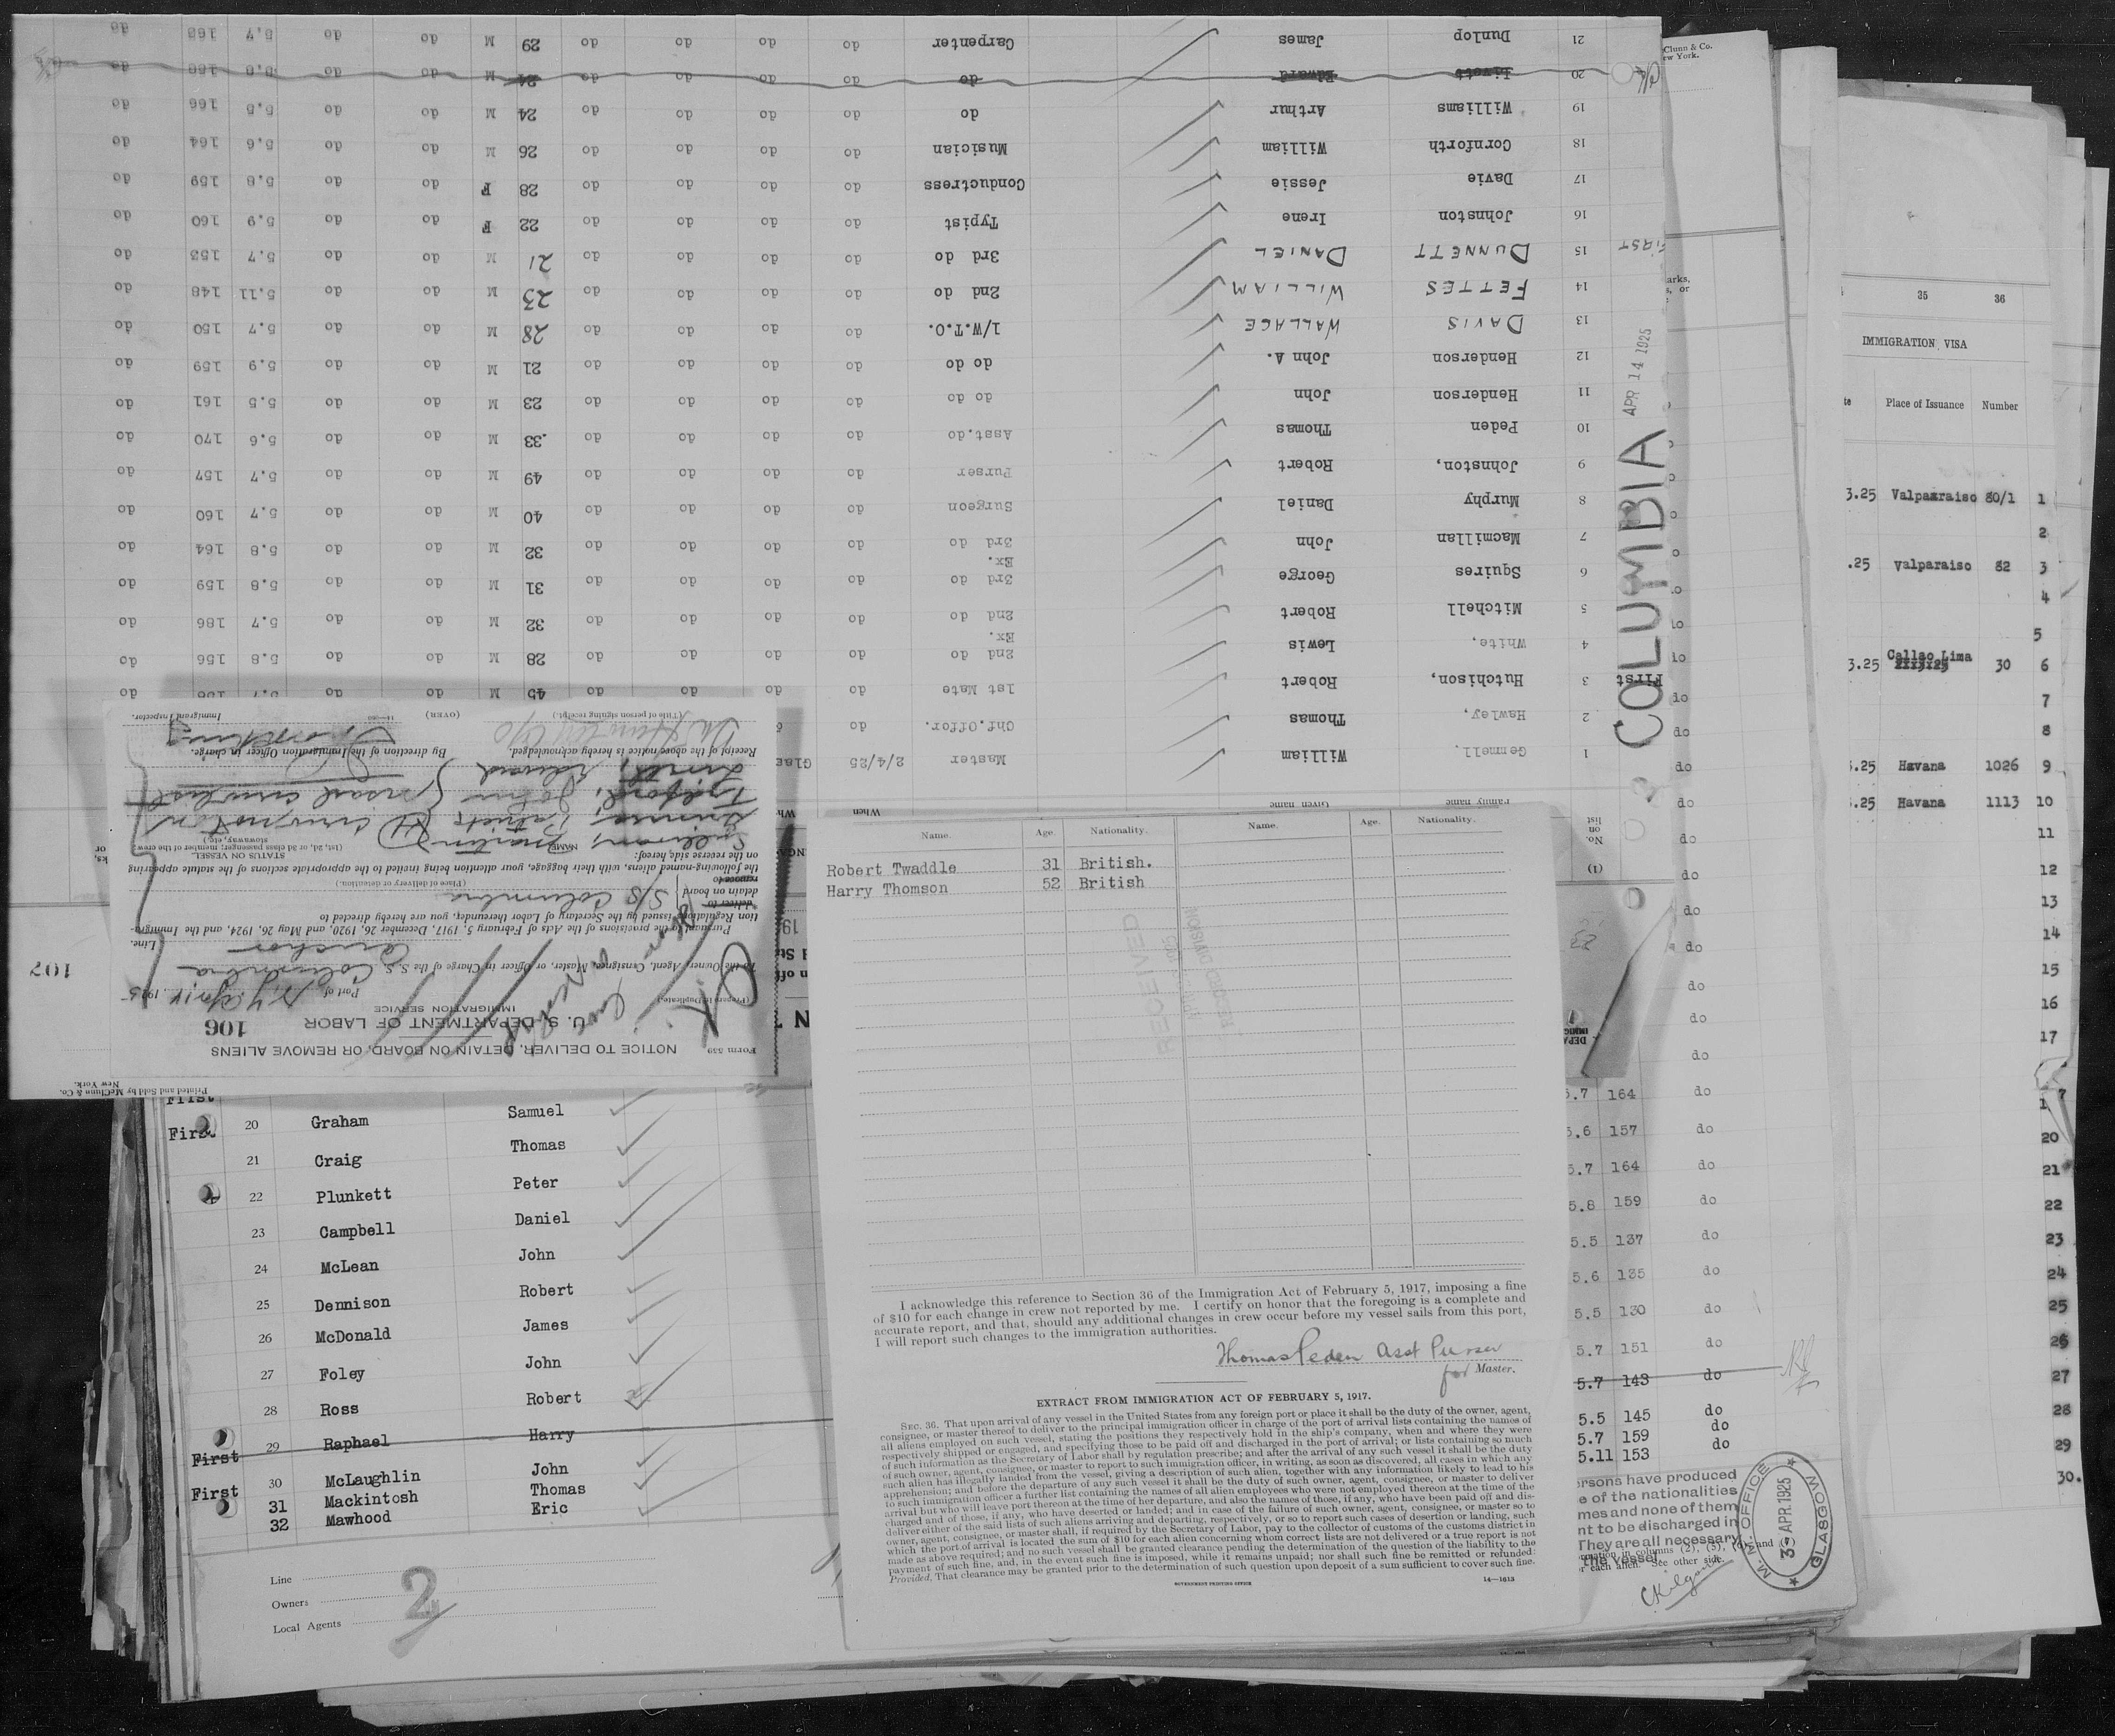 21 Dunlop James Carpenter do do do do 29 M do do 5.7 168 do
20 Livett Edward do do do do do 24 M do do 5.8 158 do
19 Williams Arthur do do do do do 24 M do do 5.5 166 do
18 Cornforth William Musician do do do do 26 M do do 5.6 164 do
17 Davie Jessie Conductress do do do do 28 F do do 5.8 159 do
16 Johnston Irene Typist do do do do 22 F do do 5.9 160 do
FIRST 15 DUNNETT DANIEL 3rd do do do do do 21 M do do 5.7 153 do
14 FETTES WILLIAM 2nd do do do do do 23 M do do 5.11 148 do
13 DAVIS WALLACE 1/W.T.O. do do do do 28 M do do 5.7 150 do
12 Henderson John A. do do do do do do 21 M do do 5.9 159 do
11 Henderson John do do do do do do 23 M do do 5.5 161 do
10 Peden Thomas Asst.do do do do do 33 M do do 5.6 170 do
9 Johnston, Robert Purser do do do do 49 M do do 5.7 157 do
8 Murphy Daniel Surgeon do do do do 40 M do do 5.7 160 do
7 Macmillan John 3rd do do do do do 32 M do do 5.8 164 do
Ex.
6 Squires George 3rd do do do do do 31 M do do 5.8 159 do
5 Mitchell Robert 2nd do do do do do 32 M do do 5.7 186 do
Ex.
4 White, Lewis 2nd do do do do do 28 M do do 5.8 156 do
First 3 Hutchison, Robert 1st Mate do do do do 45 M do do 5.7 do
2 Hawley, Thomas Chf.Offcr. do
1 Gemmell, William Master 2/4/25
Family name Given name When
No. on list
(1)
COLUMBIA APR 14 1925
Printed and Sold by McClunn & Co.
New York.
Form 539
NOTICE TO DELIVER, DETAIN ON BOARD, OR REMOVE ALIENS
U. S. DEPARTMENT OF LABOR 106
IMMIGRATION SERVICE
107
(Prepare in Duplicate)
Port of N.Y. Apr 14, 1925
To the Owner, Agent, Consignee, Master, or Officer in Charge of the S. S. Columbia
Anchor Line.
Pursuant to the provisions of the Acts of February 5, 1917, December 26, 1920, and May 26, 1924, and the Immigra-
tion Regulations issued by the Secretary of Labor thereunder, you are hereby directed to
deliver to
detain on board S/S Columbia
remove to
(Place of delivery or detention.)
the following-named aliens, with their baggage, your attention being invited to the appropriate sections of the statute appearing
on the reverse side hereof:
NAME STATUS ON VESSEL
(1st, 2d, or 3d class passenger; member of the crew; stowaway, etc.)
Sullivan, Martin
Patrick
John
Edward
Receipt of the above notice is hereby acknowledged.
By direction of the Immigration Officer in charge.
(Title of person signing receipt.) (OVER) Immigrant Inspector.
Name. Age. Nationality. Name. Age. Nationality.
Robert Twaddle 31 British.
Harry Thomson 52 British
RECEIVED
RECORD DIVISION
I acknowledge this reference to Section 36 of the Immigration Act of February 5, 1917, imposing a fine
of $10 for each change in crew not reported by me. I certify on honor that the foregoing is a complete and
accurate report, and that, should any additional changes in crew occur before my vessel sails from this port,
I will report such changes to the immigration authorities.
Thomas Peden Asst Purser
for Master.
EXTRACT FROM IMMIGRATION ACT OF FEBRUARY 5, 1917.
SEC. 36. That upon arrival of any vessel in the United States from any foreign port or place it shall be the duty of the owner, agent,
consignee, or master thereof to deliver to the principal immigration officer in charge of the port of arrival lists containing the names of
all aliens employed on such vessel, stating the positions they respectively hold in the ship's company, when and where they were
respectively shipped or engaged, and specifying those to be paid off and discharged in the port of arrival; or lists containing so much
of such information as the Secretary of Labor shall by regulation prescribe; and after the arrival of any such vessel it shall be the duty
of such owner, agent, consignee, or master to report to such immigration officer, in writing, as soon as discovered, all cases in which any
such alien has illegally landed from the vessel, giving a description of such alien, together with any information likely to lead to his
apprehension; and before the departure of any such vessel it shall be the duty of such owner, agent, consignee, or master to deliver
to such immigration officer a further list containing the names of all alien employees who were not employed thereon at the time of the
arrival but who will leave port thereon at the time of her departure, and also the names of those, if any, who have been paid off and dis-
charged and of those, if any, who have deserted or landed; and in case of the failure of such owner, agent, consignee, or master so to
deliver either of the said lists of such aliens arriving and departing, respectively, or so to report such cases of desertion or landing, such
owner, agent, consignee, or master shall, if required by the Secretary of Labor, pay to the collector of customs of the customs district in
which the port of arrival is located the sum of $10 for each alien concerning whom correct lists are not delivered or a true report is not
made as above required; and no such vessel shall be granted clearance pending the determination of the question of the liability to the
payment of such fine, and, in the event such fine is imposed, while it remains unpaid; nor shall such fine be remitted or refunded:
Provided, That clearance may be granted prior to the determination of such question upon deposit of a sum sufficient to cover such fine.
GOVERNMENT PRINTING OFFICE 14—1613
First
First 20 Graham Samuel
21 Craig Thomas
22 Plunkett Peter
23 Campbell Daniel
24 McLean John
25 Dennison Robert
26 McDonald James
27 Foley John
28 Ross Robert
First 29 Raphael Harry
First 30 McLaughlin John
31 Mackintosh Thomas
32 Mawhood Eric
Line
Owners
Local Agents
2
5.7 164 do
5.6 157 do
5.7 164 do
5.8 159 do
5.5 137 do
5.6 135 do
5.5 130 do
5.7 151 do
5.7 143 do
5.5 145 do
5.7 159 do
5.11 153 do
ersons have produced
e of the nationalities
mes and none of them
nt to be discharged in
They are all necessary
the vessel
r each alien. See other side.
M. M. OFFICE GLASGOW
3 APR.1925
C Kilgour
Clunn & Co.
w York.
35 36
IMMIGRATION VISA
te Place of Issuance Number
3.25 Valpaaraiso 80/1 1
2
.25 Valparaiso 82 3
4
5
3.25 Callao Lima 30 6
7
8
.25 Havana 1026 9
.25 Havana 1113 10
11
12
13
14
15
16
17
20
21
22
23
24
25
26
27
28
29
30.